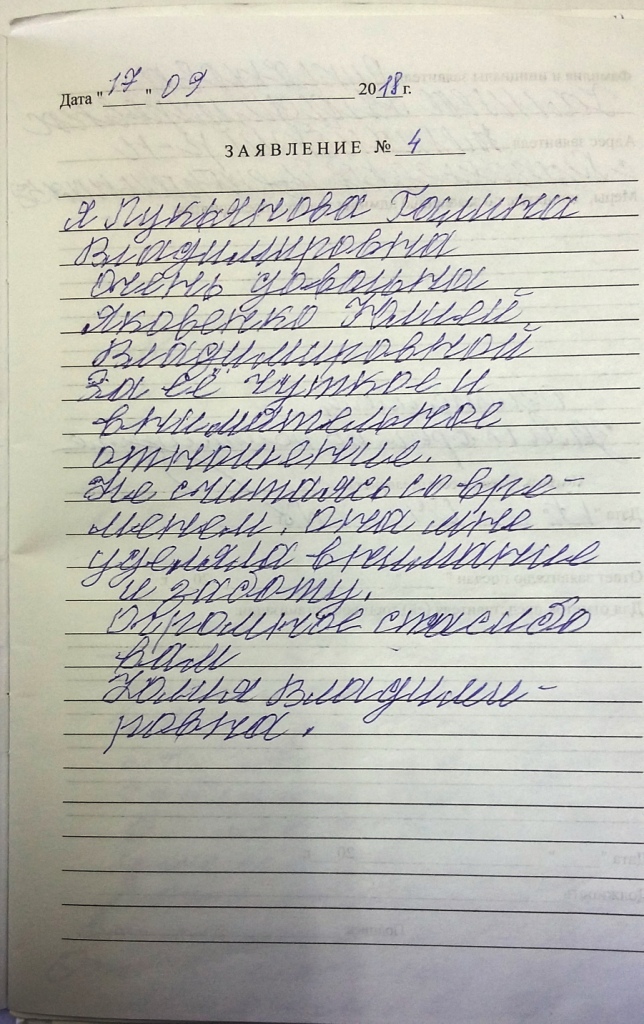 Дата "17" 09 2018 г.
ЗАЯВЛЕНИЕ № 4
Я Лукьянова Галина
Владимировна
очень довольна
Яковенко Юлией
Владимировной
За её чуткое и
внимательное
отношение.
Не считаясь со вре-
менем, она мне
уделяла внимание
и заботу.
Огромное спасибо
вам
Юлия Владими-
ровна.